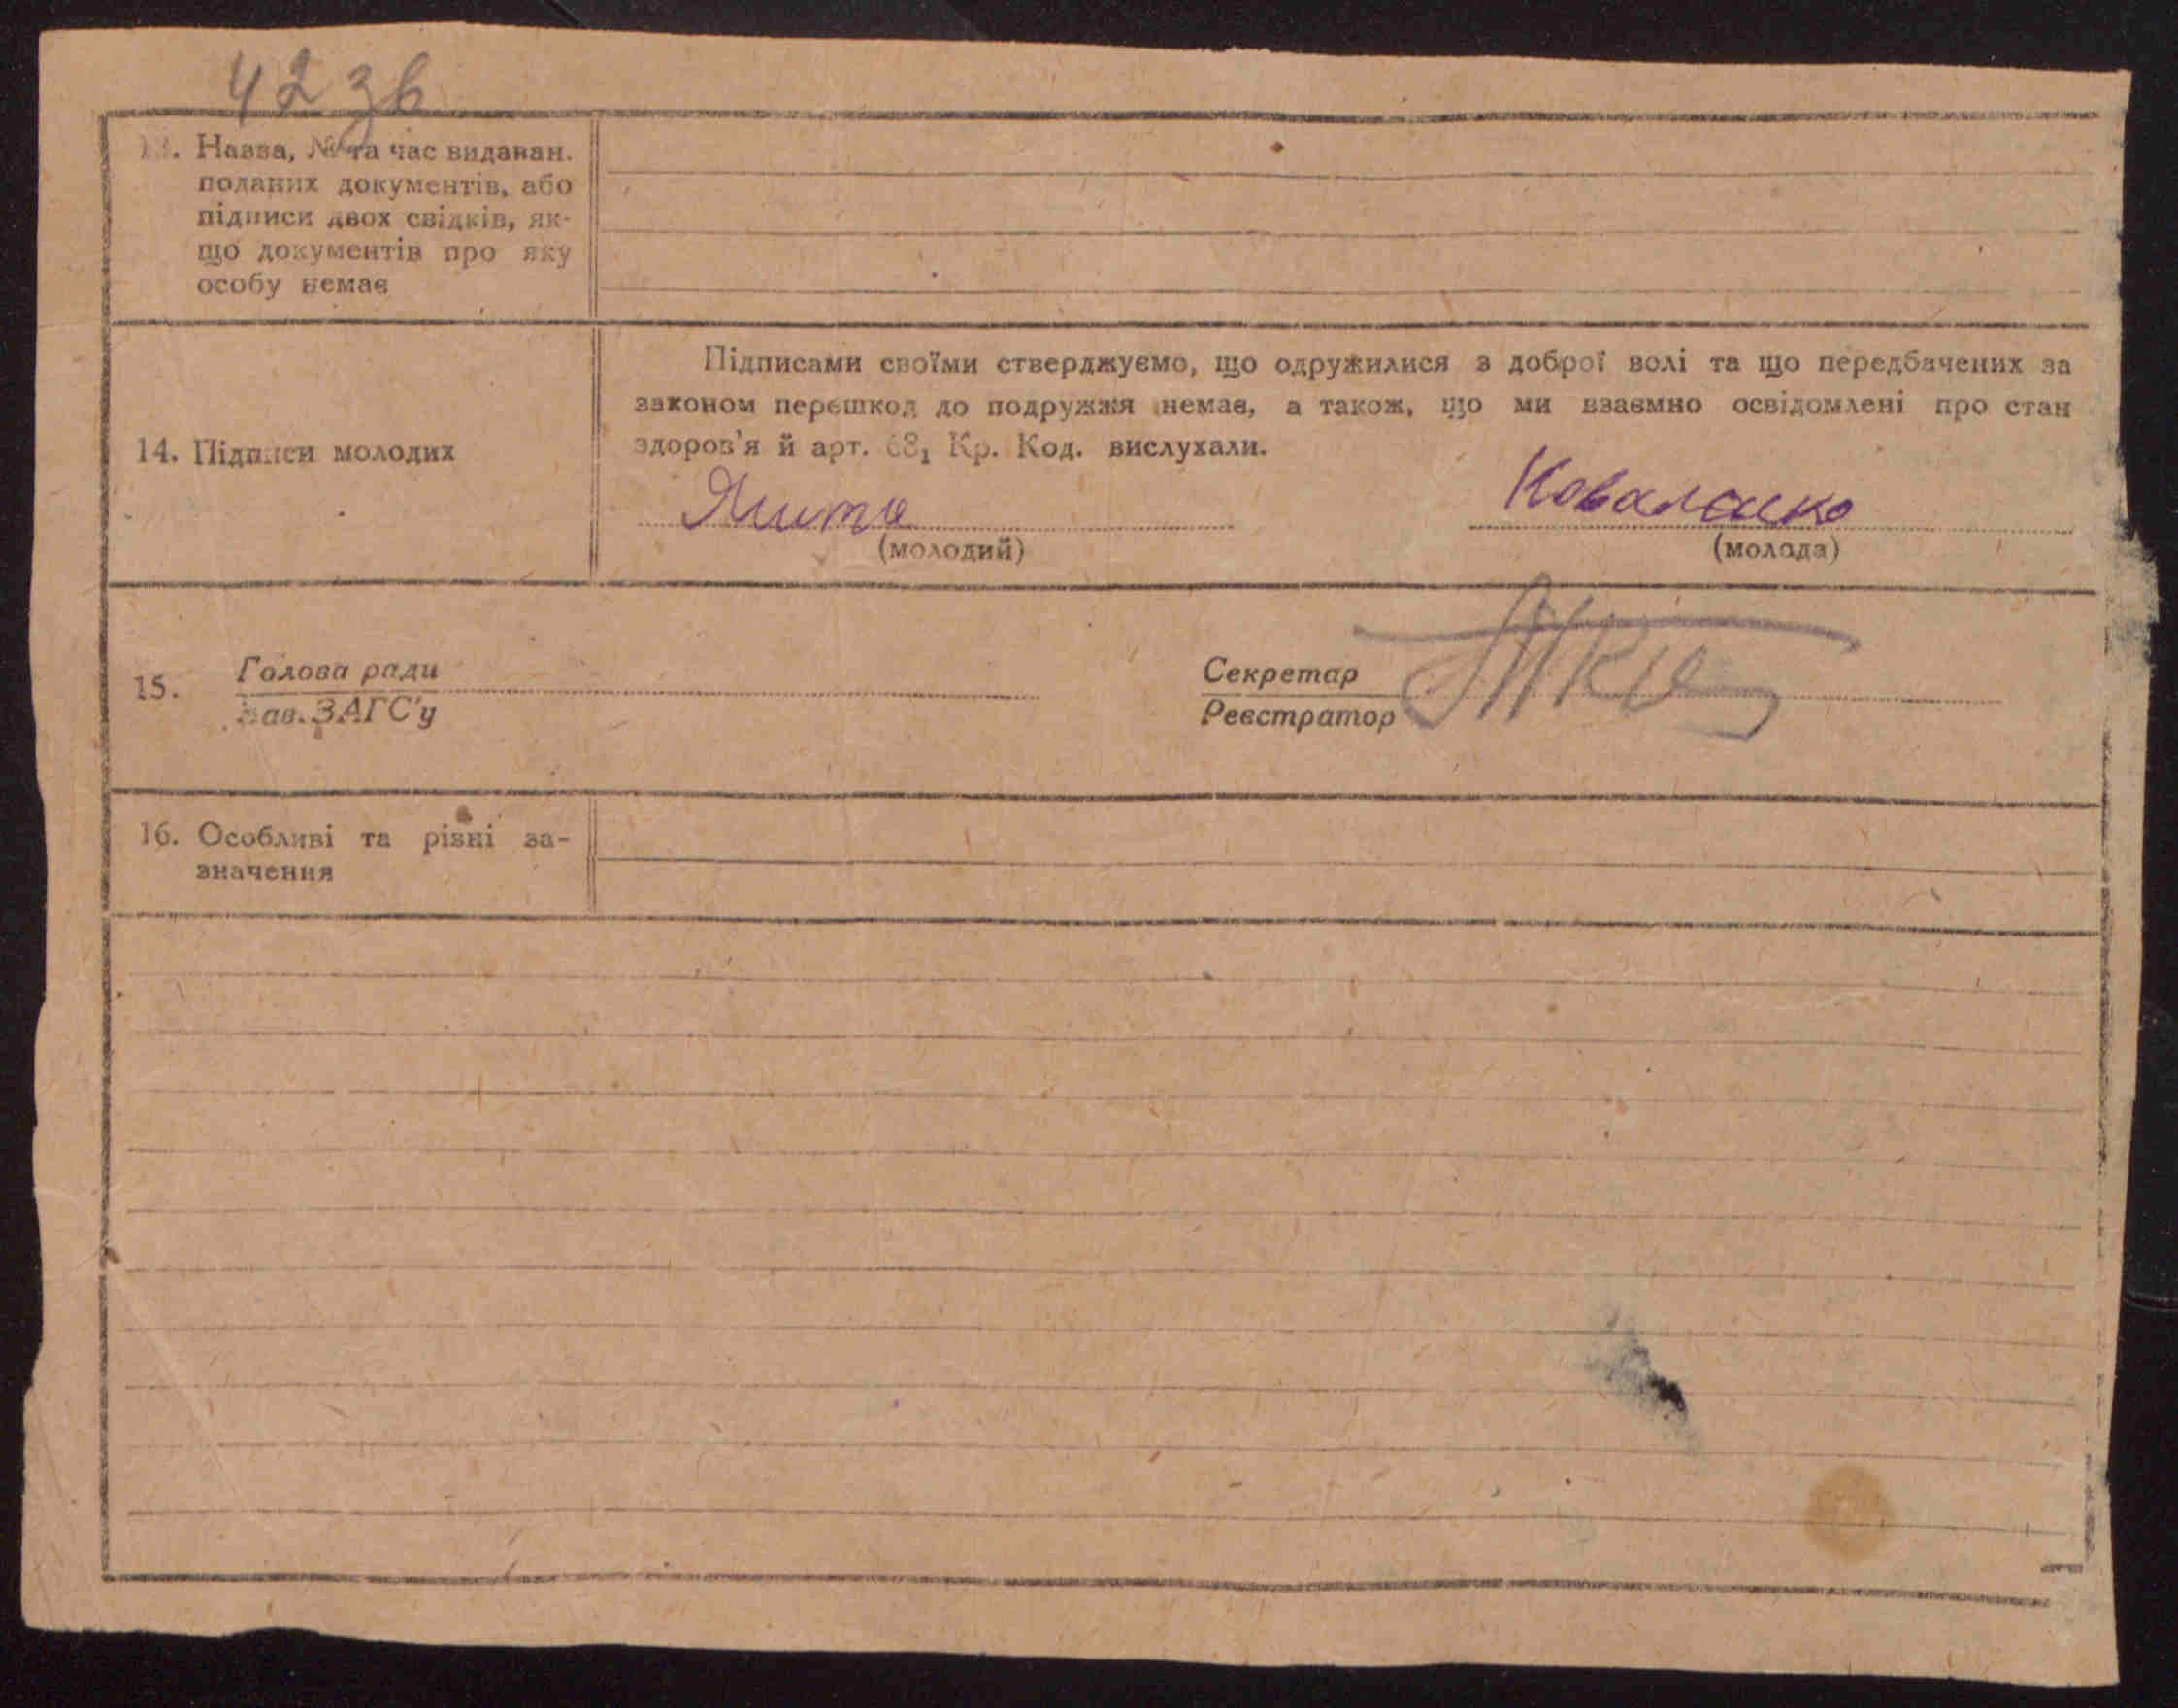 42 зв
13. Назва, № та час видаван.
поданих документів, або
підписи двох свідків, як-
що документів про яку
особу немає
Підписами своїми стверджуємо, що одружилися з доброї волі та що передбачених за
законом перешкод до подружжя немає, а також, що ми взаємно освідомлені про стан
здоров'я й арт. 68₁ Кр. Код. вислухали.
14. Підписи молодих
Коваленко
(молодий) (молода)
15. Голова ради
Зав. ЗАГС'у
Секретар
Реєстратор
16. Особливі та різні за-
значення